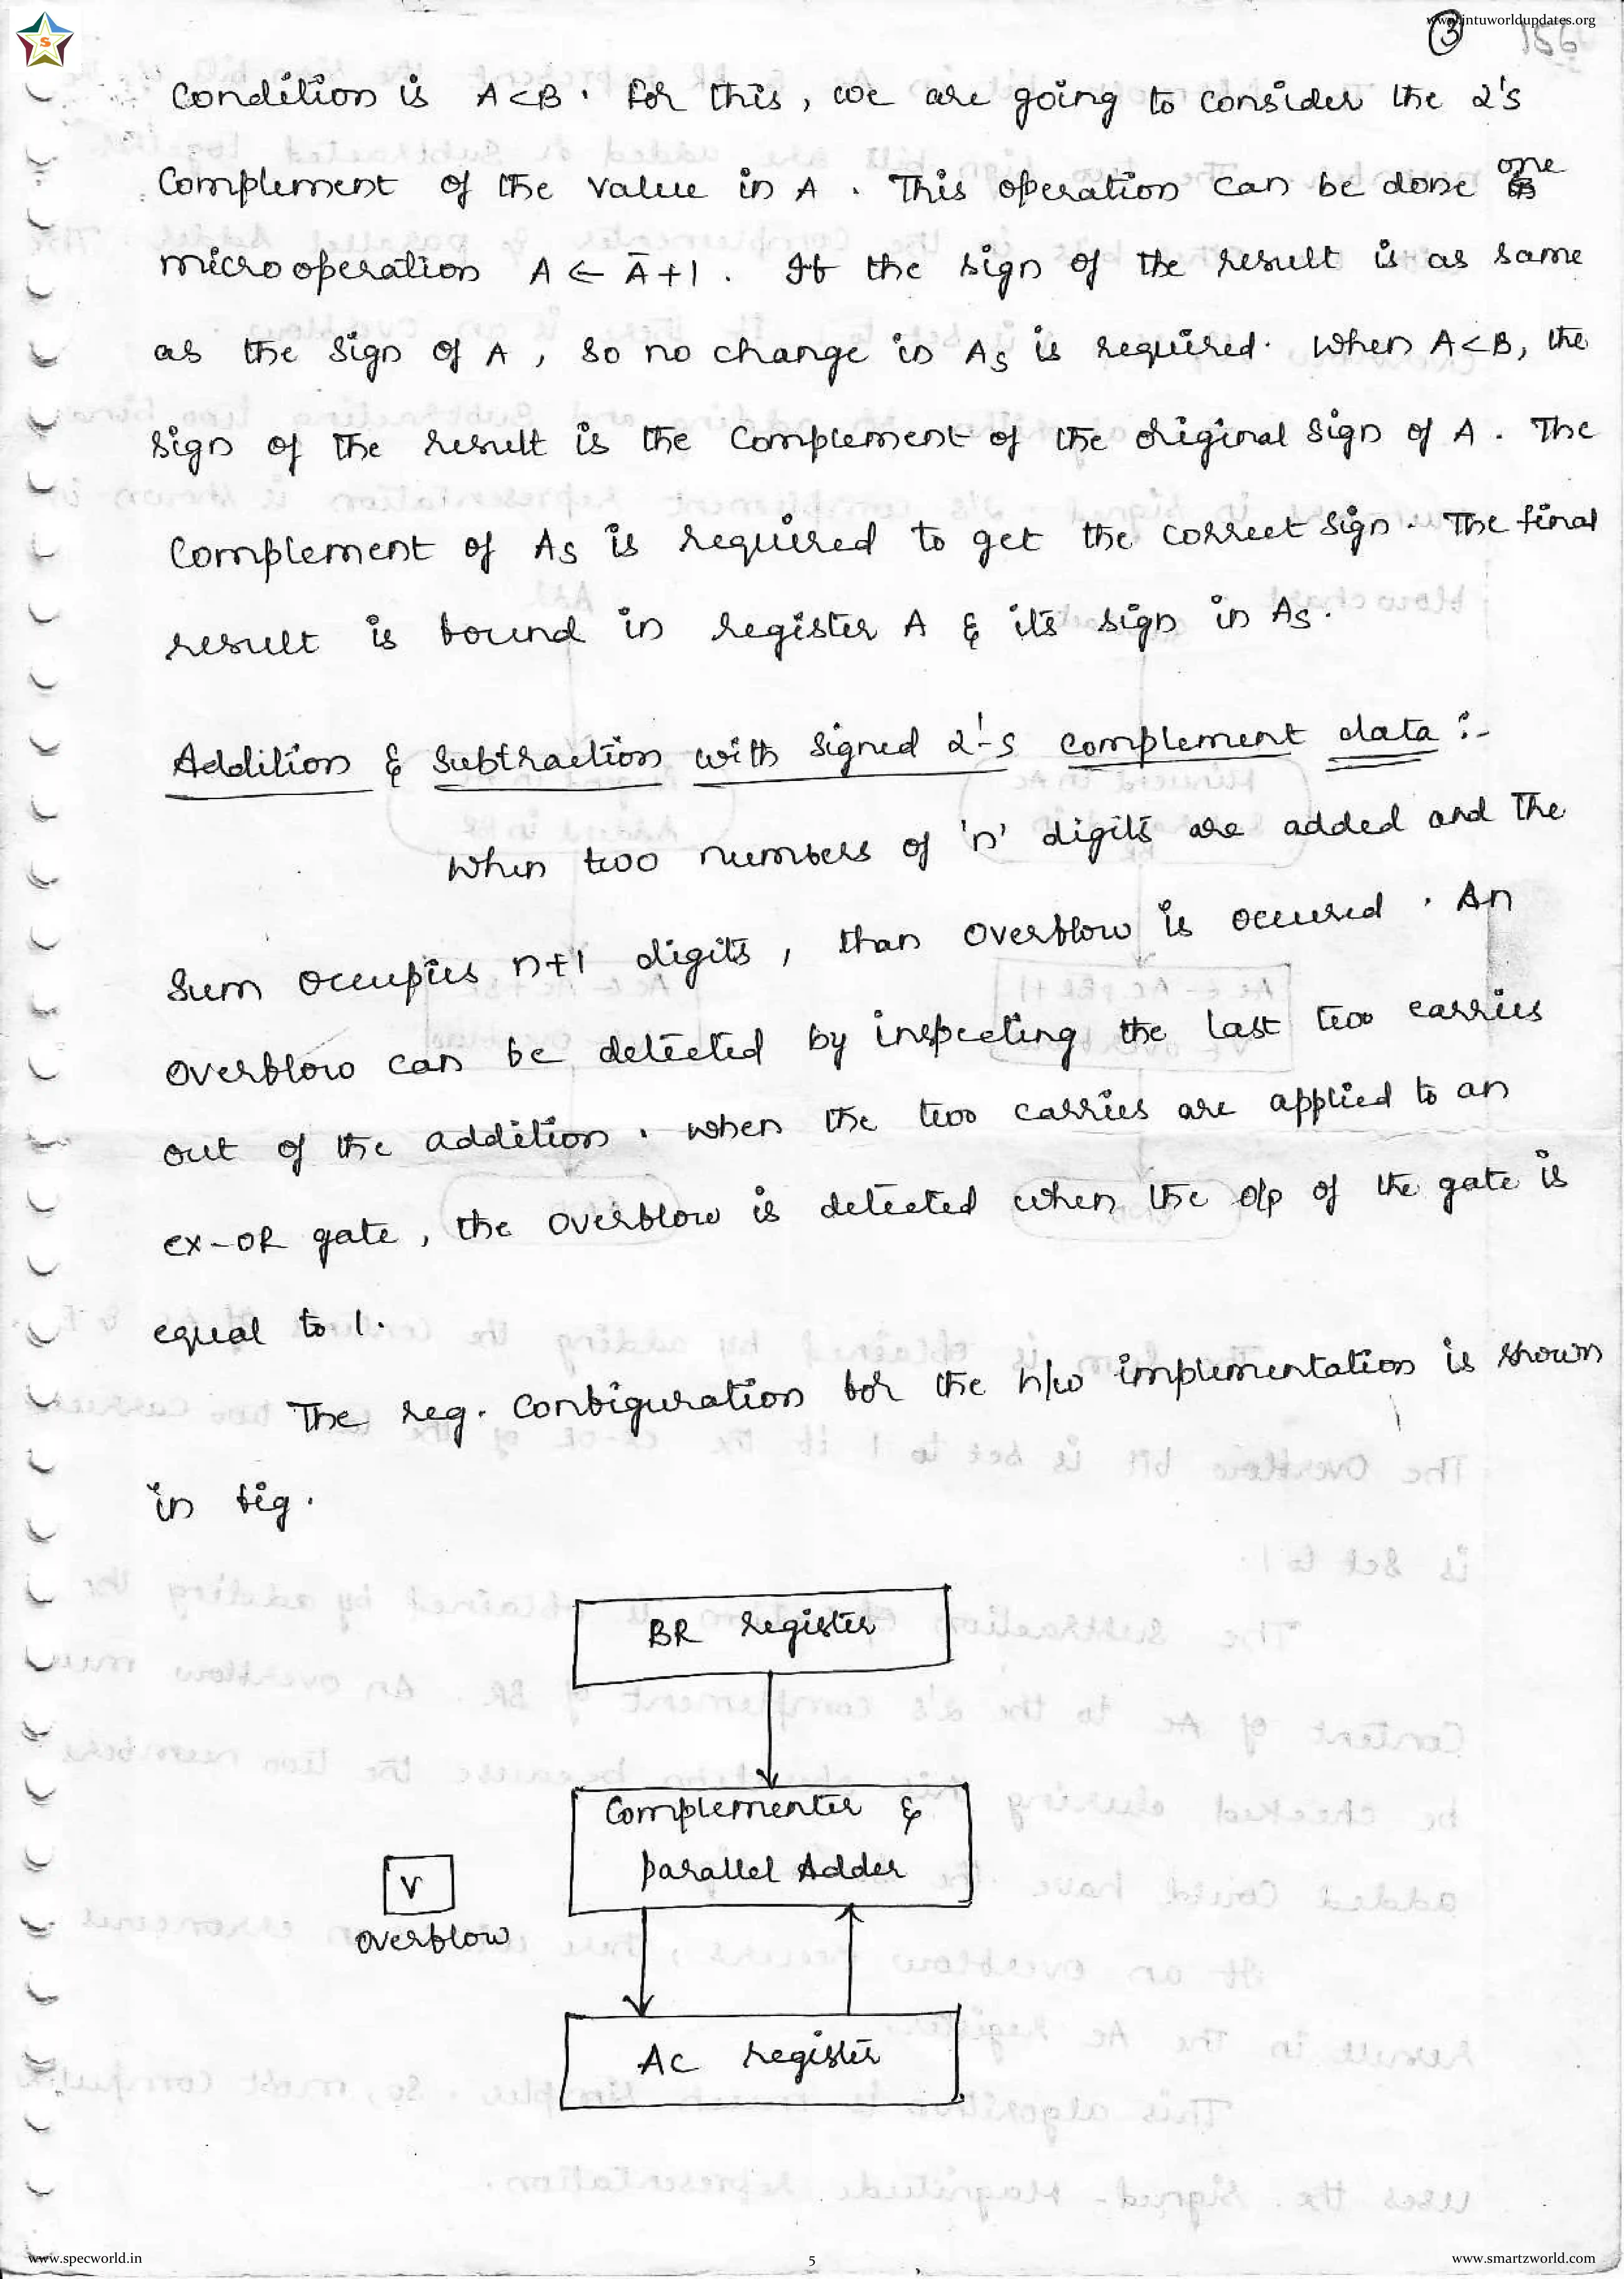 www.jntuworldupdates.org
3 156
Condition is A<B. For this, we are going to consider the 2's
Complement of the value in A. This operation can be done one
microoperation A ← Ā+1. If the sign of the result is as same
as the sign of A, so no change in As is required. When A<B, the
sign of the result is the Complement of the original sign of A. The
Complement of As is required to get the correct sign. The final
result is found in register A & its sign in As.
Addition & Subtraction with signed 2'-s complement data :-
When two numbers of 'n' digits are added and the
Sum occupies n+1 digits, than overflow is occured. An
overflow can be detected by inspecting the last two carries
out of the addition. when the two carries are applied to an
ex-OR gate, the overflow is detected when the o/p of the gate is
equal to 1.
The reg. configuration for the h/w implementation is shown
in fig.
BR register
Complementer &
parallel Adder
V
overflow
AC register
www.specworld.in
5
www.smartzworld.com